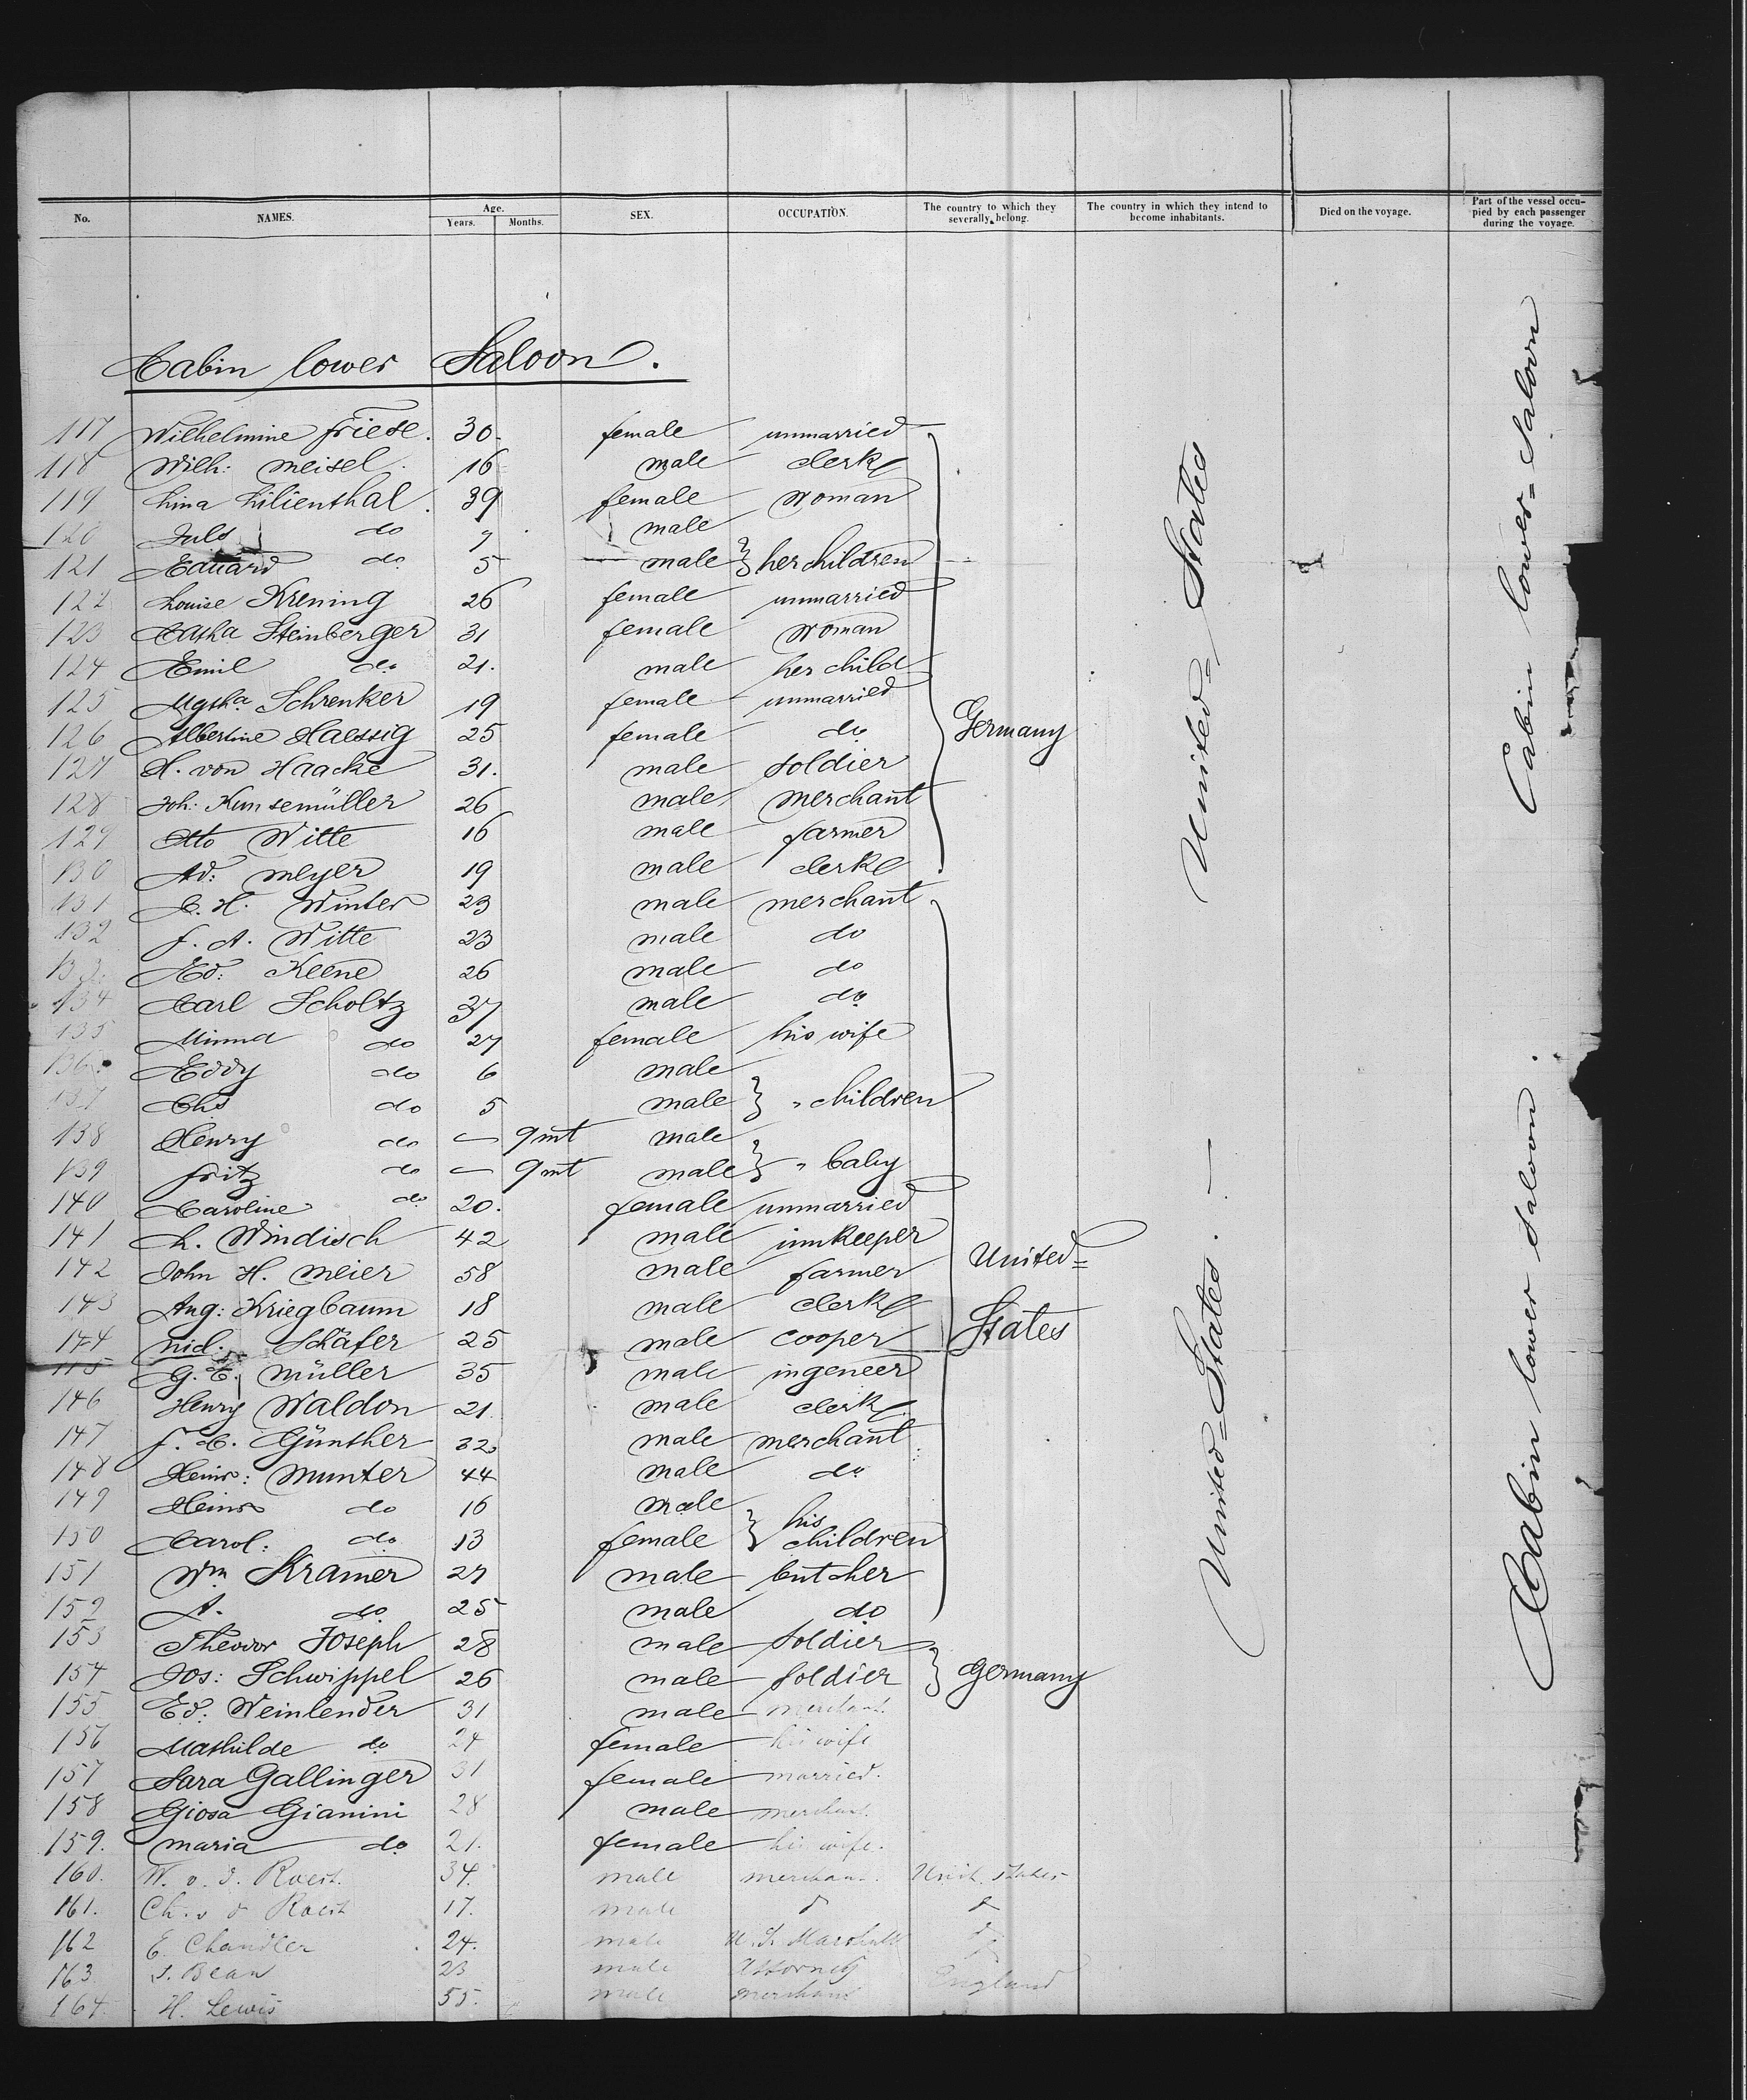 No. NAMES. Age. Years. Months. SEX. OCCUPATION. The country to which they severally belong. The country in which they intend to become inhabitants. Died on the voyage. Part of the vessel occupied by each passenger during the voyage.
Cabin lower Saloon.
117 Wilhelmine Friese. 30. female unmarried
118 Wilh: Meisel 16 male clerk
119 Lina Lilienthal 39 female woman
120 Juls do 7 male
121 Eduard do 5 male } her children
122 Louise Krening 26 female unmarried
123 Catha Steinberger 31 female woman
124 Emil do 21. male her child
125 Mgtha Schrenker 19 female unmarried
126 Albertine Haessig 25 female do Germany
127 H. von Haacke 31. male soldier
128 Joh: Kunsemüller 26 male merchant
129 Otto Witte 16 male farmer
130 Ad: Meyer 19 male clerk
131 C. H. Winter 23 male merchant
132 F. A. Witte 23 male do
133 Ed: Keene 26 male do
134 Carl Scholtz 37 male do
135 Minna do 27 female his wife
136 Eddy do 6 male
137 Chs do 5 male } " children
138 Henry do — 9 mt male
139 Fritz do — 9 mt male } " baby
140 Caroline do 20. female unmarried
141 L. Windisch 42 male innkeeper
142 John H. Meier 58 male farmer United=
143 Aug: Kriegbaum 18 male clerk
144 Nicl. Schäfer 25 male cooper States
145 G. C. Müller 35 male ingeneer
146 Henry Waldon 21. male clerk
147 F. C. Günther 32 male merchant
148 Heinr: Munter 44 male do
149 Heinr do 16 male
150 Carol: do 13 female } his children
151 Wm Kramer 27 male butcher
152 A. do 25 male do
153 Theodor Joseph 28 male soldier
154 Jos: Schwippel 26 male soldier } Germany
155 Ed: Weinlender 31 male merchant.
156 Mathilde do 24 female his wife
157 Sara Gallinger 31 female married.
158 Giosa Gianini 28 male merchant.
159. Maria do 21. female his wife.
160. W. v. d. Roest. 34. male merchant. Unit. States
161. Ch. v d Roest 17. male
162 E. Chandler 24. male U. S. Marshall
163. S. Bean 23 male Attorney
164. H. Lewis 55. male merchant England
United= States
United= States. —
Cabin lower= Saloon
Cabin lower Saloon.